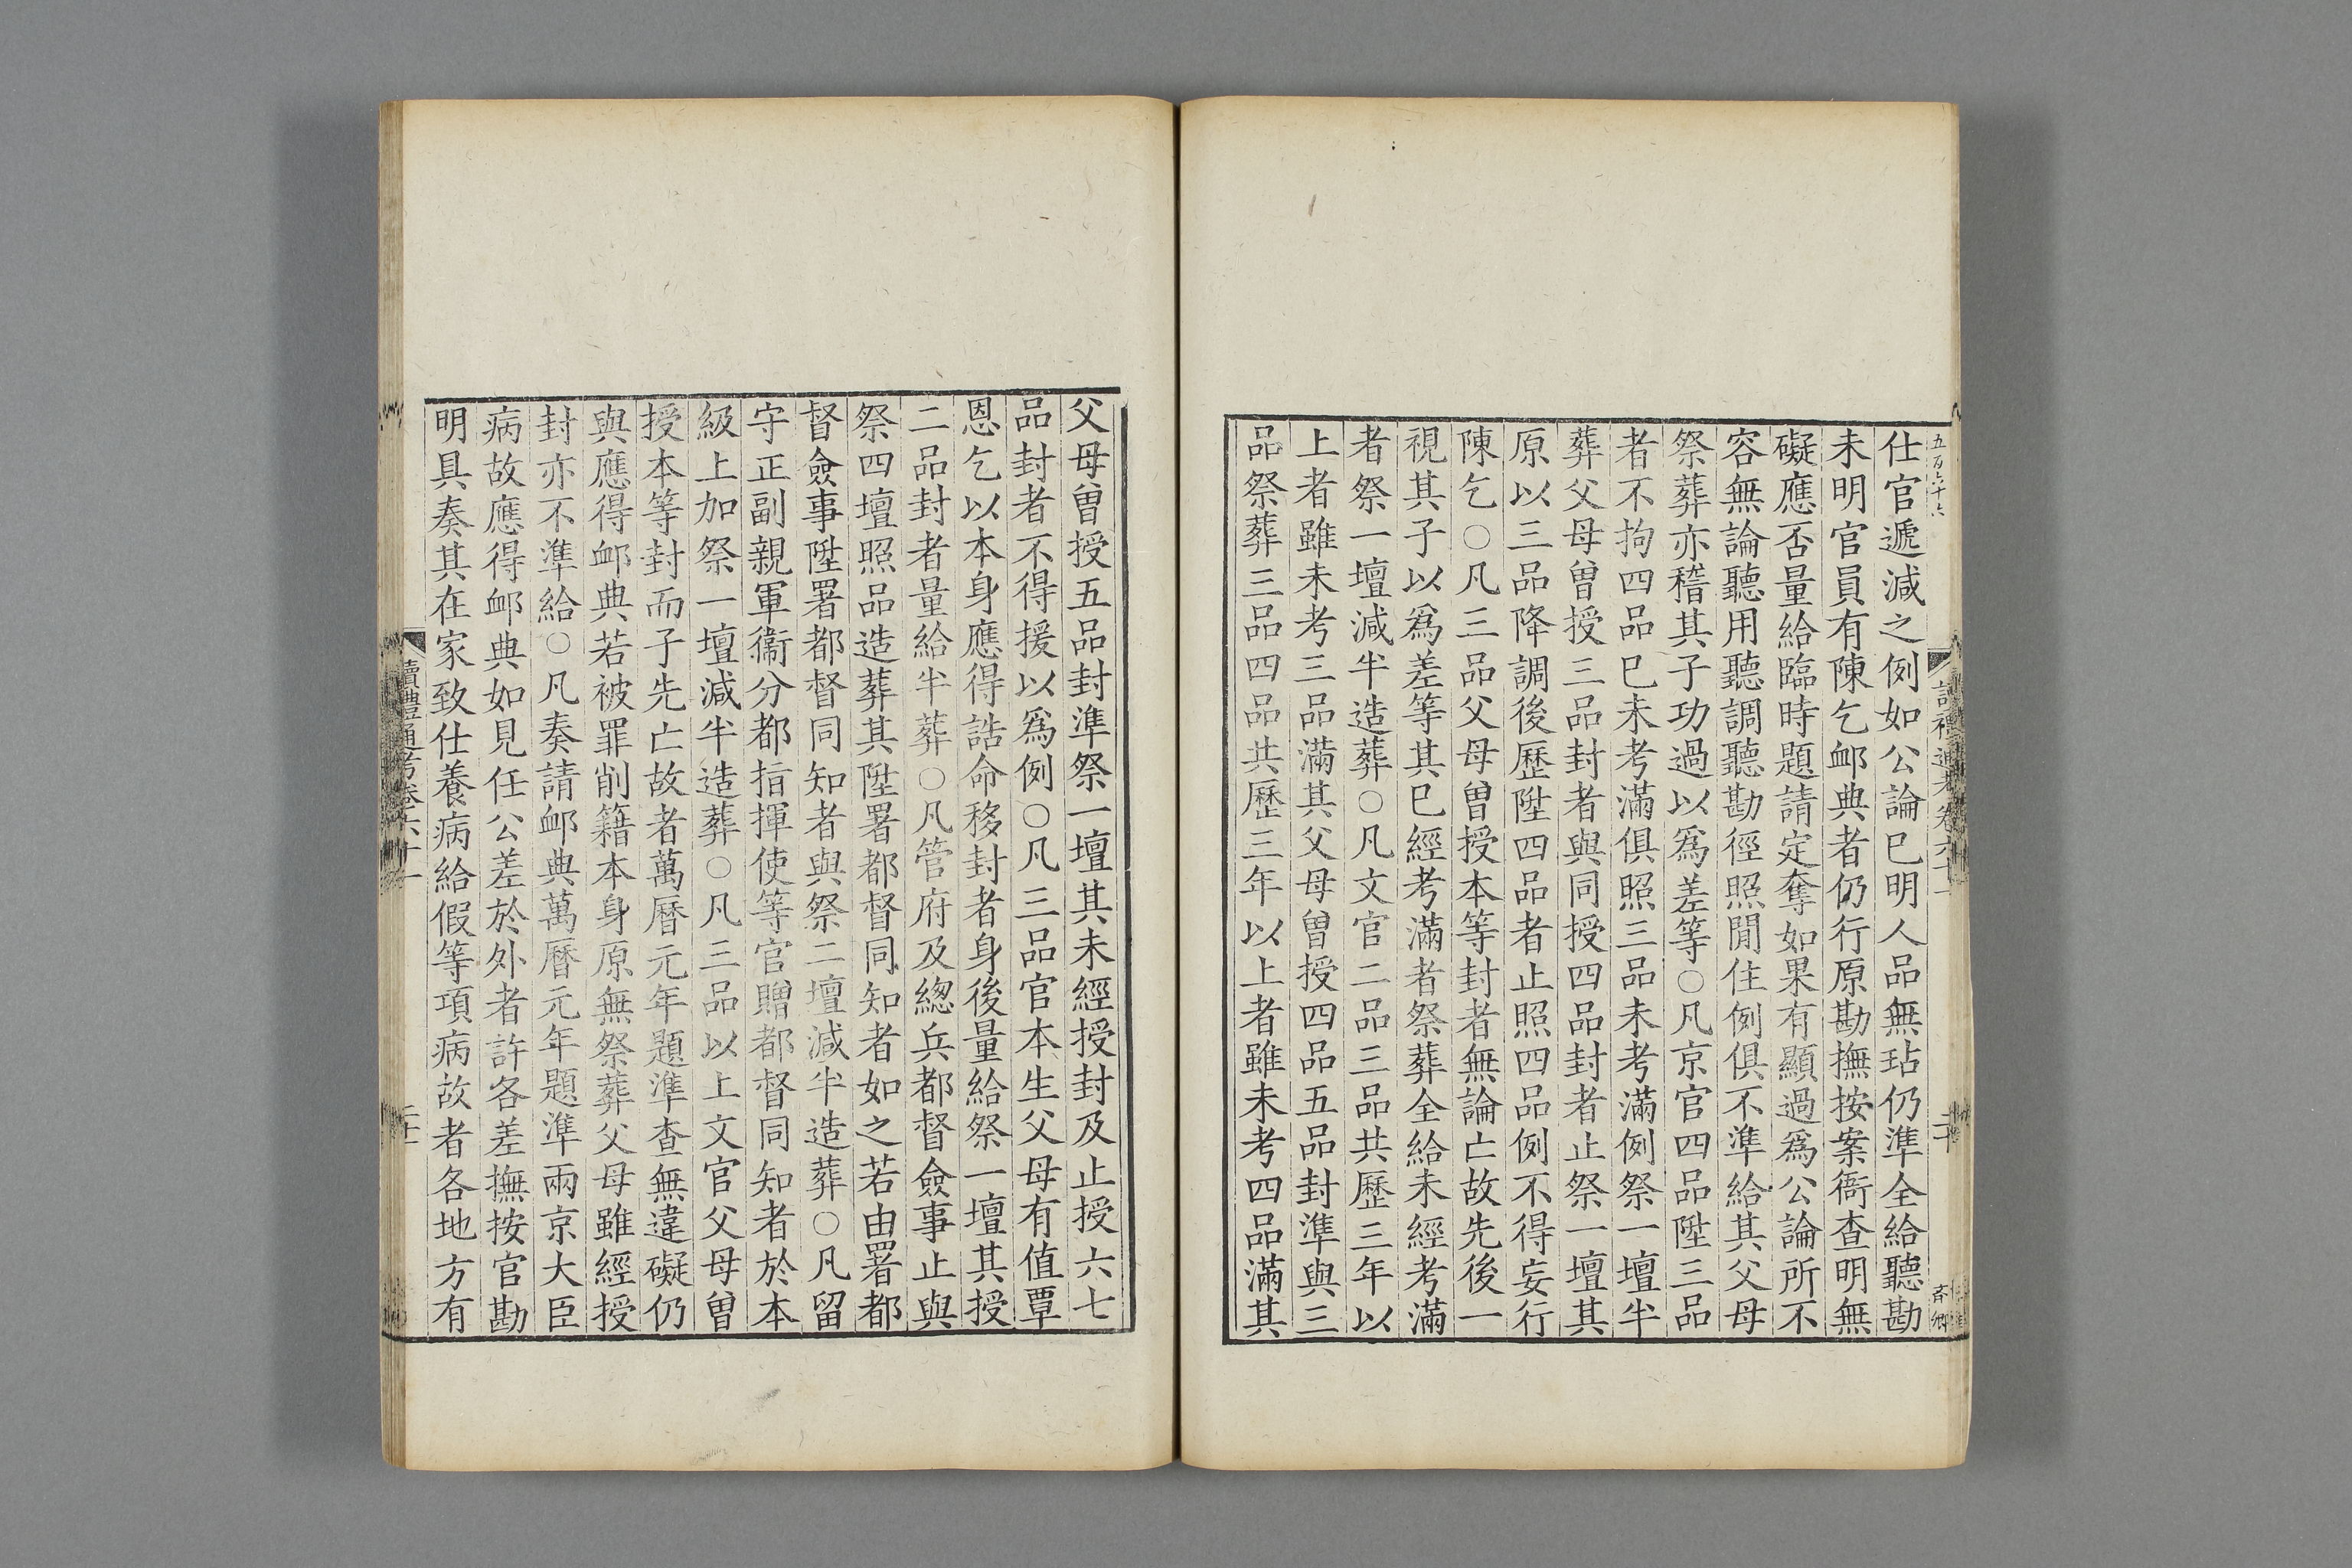 五百六十六
讀禮通考卷六十一
二十
仕官遞減之例如公論已明人品無玷仍準全給聽勘
未明官員有陳乞䘏典者仍行原勘撫按案衙查明無
礙應否量給臨時題請定奪如果有顯過爲公論所不
容無論聽用聽調聽勘徑照閒住例俱不準給其父母
祭葬亦稽其子功過以爲差等○凡京官四品陞三品
者不拘四品已未考滿俱照三品未考滿例祭一壇半
葬父母曾授三品封者與同授四品封者止祭一壇其
原以三品降調後歷陞四品者止照四品例不得妄行
陳乞○凡三品父母曾授本等封者無論亡故先後一
視其子以爲差等其已經考滿者祭葬全給未經考滿
者祭一壇減半造葬○凡文官二品三品共歷三年以
上者雖未考三品滿其父母曾授四品五品封準與三
品祭葬三品四品共歷三年以上者雖未考四品滿其
父母曾授五品封準祭一壇其未經授封及止授六七
品封者不得援以爲例○凡三品官本生父母有值覃
恩乞以本身應得誥命移封者身後量給祭一壇其授
二品封者量給半葬○凡管府及總兵都督僉事止與
祭四壇照品造葬其陞署都督同知者如之若由署都
督僉事陞署都督同知者與祭二壇減半造葬○凡留
守正副親軍衞分都指揮使等官贈都督同知者於本
級上加祭一壇減半造葬○凡三品以上文官父母曾
授本等封而子先亡故者萬曆元年題準查無違礙仍
與應得䘏典若被罪削籍本身原無祭葬父母雖經授
封亦不準給○凡奏請䘏典萬曆元年題準兩京大臣
病故應得䘏典如見任公差於外者許各差撫按官勘
明具奏其在家致仕養病給假等項病故者各地方有
讀禮通考卷六十一